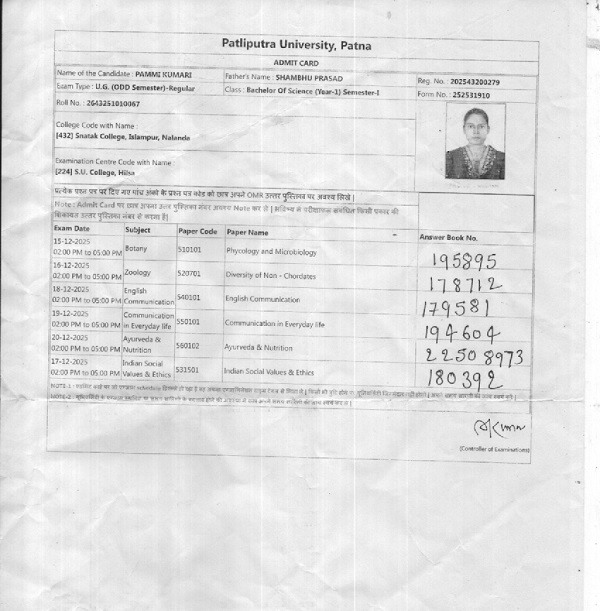 Patliputra University, Patna
ADMIT CARD
Name of the Candidate : PAMMI KUMARI Father's Name : SHAMBHU PRASAD Reg. No. : 202543200279
Exam Type : U.G. (ODD Semester)-Regular Class : Bachelor Of Science (Year-1) Semester-I Form No. : 252531910
Roll No. : 2643251010067
College Code with Name :
[432] Snatak College, Islampur, Nalanda
Examination Centre Code with Name :
[224] S.U. College, Hilsa
प्रत्येक प्रश्न पत्र पर दिए गए पांच अंको के प्रश्न पत्र कोड को छात्र अपने OMR उत्तर पुस्तिका पर अवश्य लिखें |
Note : Admit Card पर छात्र अपना उत्तर पुस्तिका नंबर अवश्य Note कर लें | भविष्य में परीक्षाफल संबंधित किसी प्रकार की
शिकायत उत्तर पुस्तिका नंबर से करना है |
Exam Date Subject Paper Code Paper Name Answer Book No.
15-12-2025
02:00 PM to 05:00 PM Botany 510101 Phycology and Microbiology 195895
16-12-2025
02:00 PM to 05:00 PM Zoology 520701 Diversity of Non - Chordates 178712
18-12-2025
02:00 PM to 05:00 PM English Communication 540101 English Communication 179581
19-12-2025
02:00 PM to 05:00 PM Communication in Everyday life 550101 Communication in Everyday life 194604
20-12-2025
02:00 PM to 05:00 PM Ayurveda & Nutrition 560102 Ayurveda & Nutrition 22508973
17-12-2025
02:00 PM to 05:00 PM Indian Social Values & Ethics 531501 Indian Social Values & Ethics 180392
(Controller of Examinations)